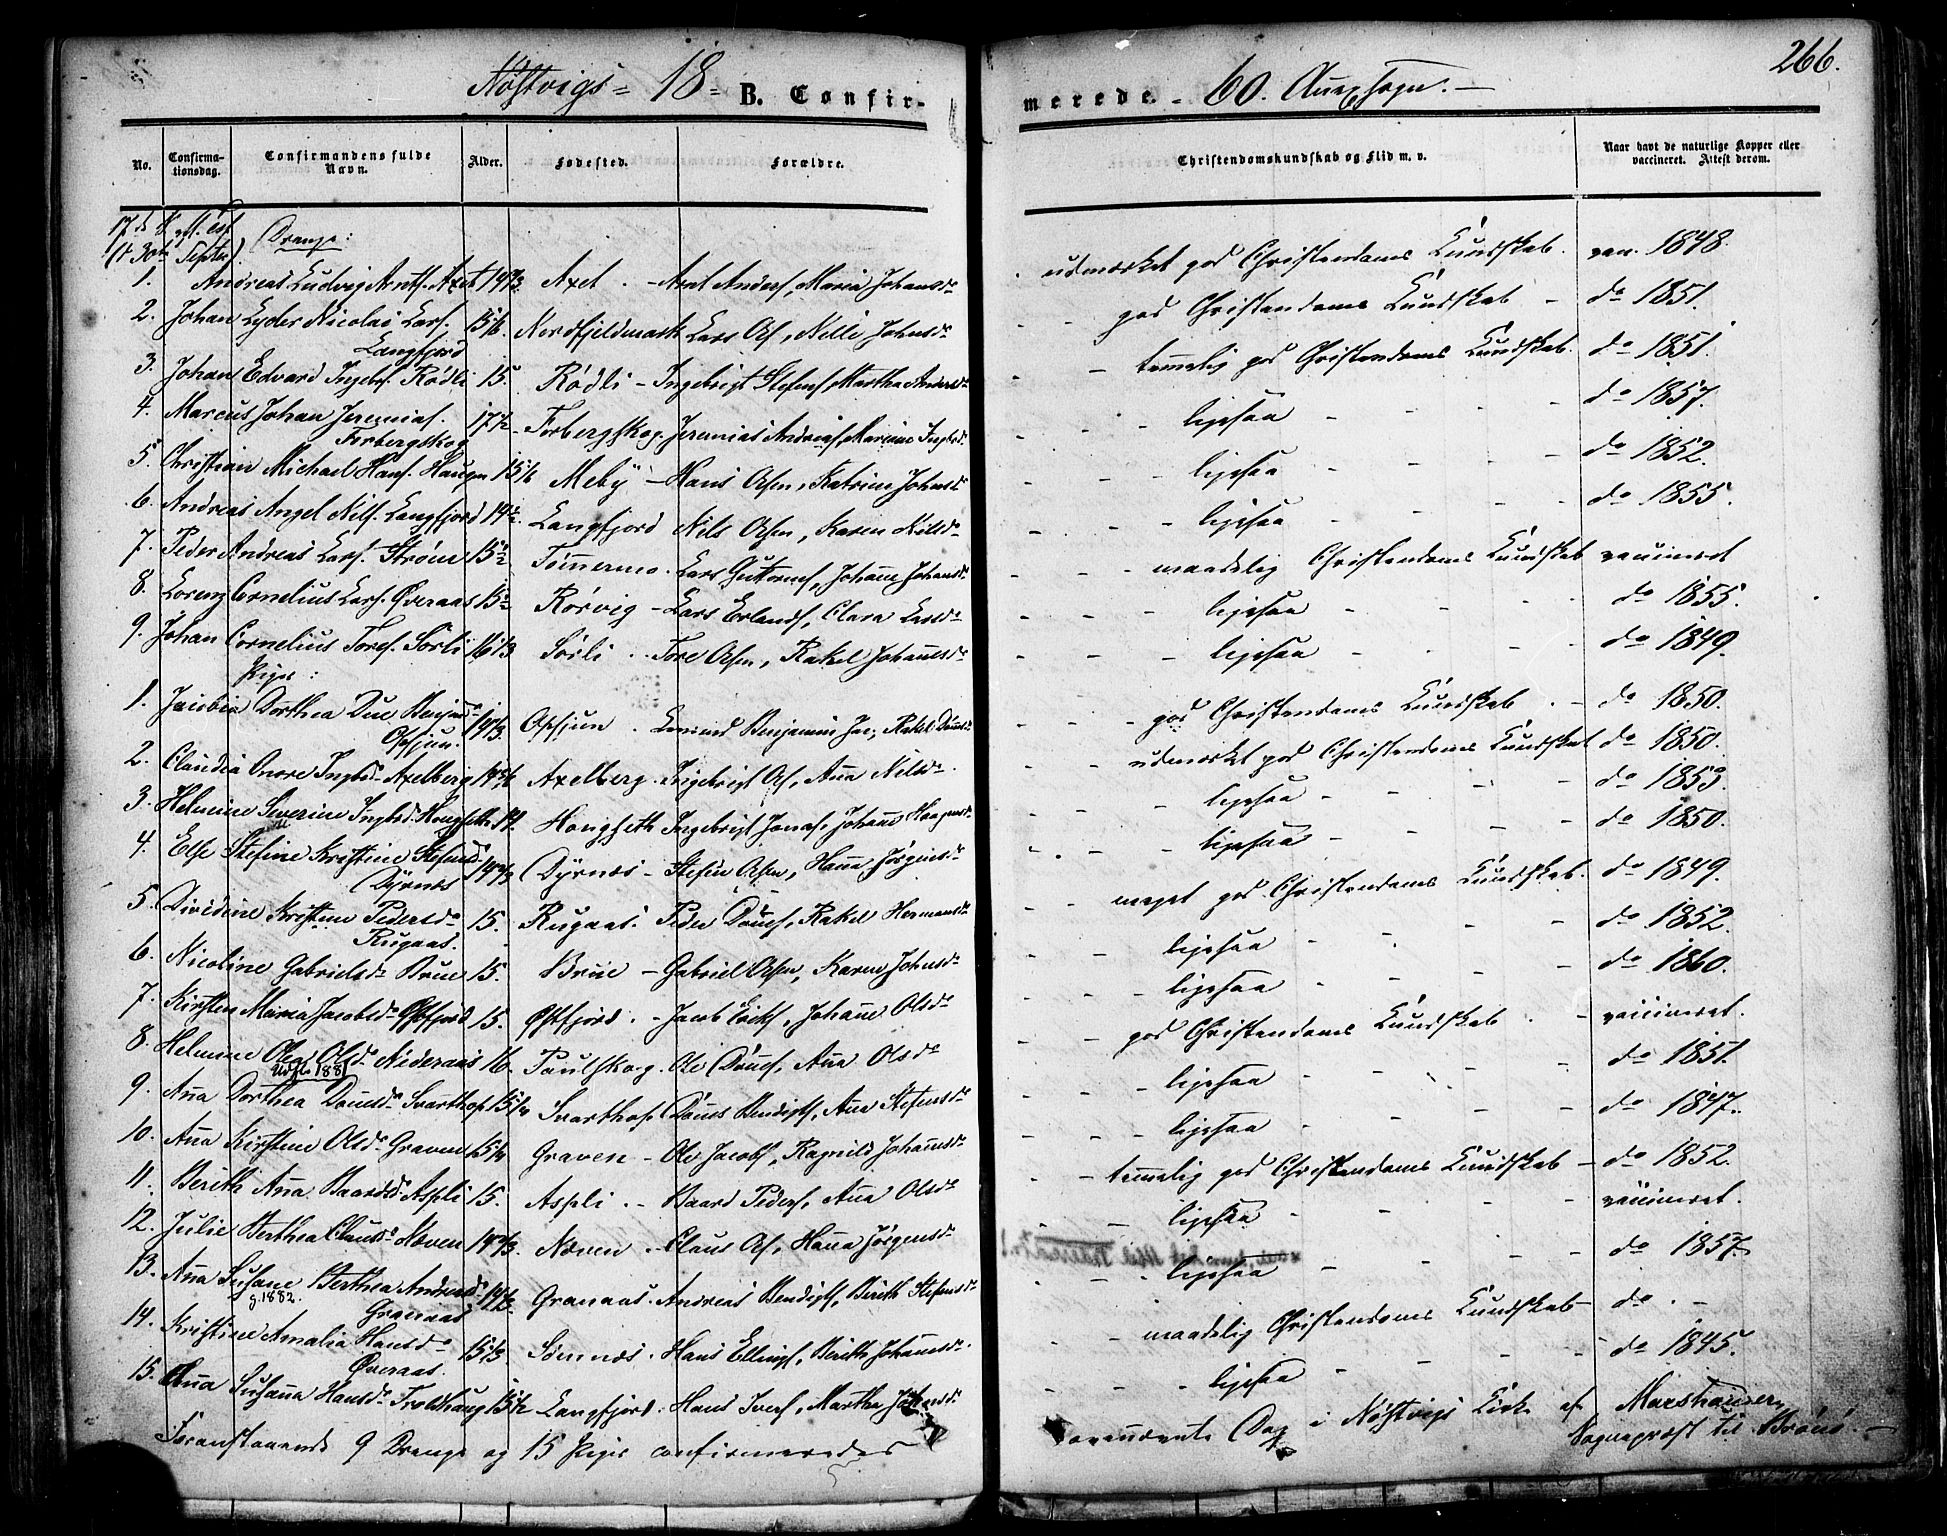 266.
Nøstvigs - 18 - B. Confir-
merede. - 60. Anexsogn. -
No. Confirma-tionsdag. Confirmandens fulde Navn. Alder. Fødested. Forældre.
Christendomskundskab og Flid m. v. Naar havt de naturlige Kopper eller vaccineret. Attest derom.
17de
(d 30te Septbr). Drenge:
1. Andreas Ludvig Axel Axel Maria Johansdr udmærket god Christendoms Kundskab. vacc. 1848.
2. Johan Lyder Nicolai Lars. Langfjord 15 Nordfjeldmark Lars Ols, Nelle Johnsdr god Christendoms Kundskab - do 1851.
3. Johan Edvard Ingebr. Rødli 15. Rødli - Ingebrigt Stefens, Martha Andersdr temmelig god Christendoms Kundskab. do 1851.
4. Marcus Johan Jeremias. Forbergskog 17½ Forbergskog. Jeremias Andreas, ligesaa do 1857.
5. Christian Michael Hans. Haugen 15 Meby - Hans Olsen, Katrine Johnsd ligesaa do 1852.
6. Andreas Angel Nils. Langfjord 14½ Langfjord Nils Olsen, Karen Nilsdr ligesaa do 1855.
7. Peder Andreas Lars. Strøm 15½ Tømmermo. Lars Guttorms, Johanne Johansd maadelig Christendoms Kundskab vaccineret
8. Lorenz Cornelius Lars. Øveraas 15½ Rørvig - Lars Erlands, Clara Larsdr ligesaa do 1855.
9. Johan Cornelius Tores. Sørli 16⅓ Sørli - Tore Olsen, Rakel Johannesdr ligesaa do 1849.
Piger:
1. Jacobia Dorthea Due Benjamsdr Opsjøn. 14⅔ Opsjøn Benjamin Rakel god Christendoms Kundskab - do 1850.
2. Claudia Onore Ingbrd. Axelberg 14 Axelberg. Ingebrigt Ols, Anna Nilsdr. udmærket god Christendoms Kundskab do 1850.
3. Helmine Severine Ingbrd. Hongseth 14. Hongseth Ingebrigt Jonas, Johanne Haagensdr ligesaa do 1855.
4. Else Stefine Kristine Stefensdr Dyrnæs 14⅔ Dyrnæs - Stefen Olsen, Hanna Jørgensdr ligesaa do 1850.
5. Kristine Pedersdr Rugaas. 15. Rugaas. Peder Rakel Hermansdr meget god Christendoms Kundskab. do 1849.
6. Nicoline Gabrielsdr Brue 15. Brue - Gabriel Olsen, Karen Johnsdr ligesaa do 1852.
7. Kirsten Maria Jacobsdr Østfjord 15. Østfjord - Jacob Eriks, Johanne Olsdr ligesaa do 1860.
8. Helmine Olea Olsdr. Nideraas 16. Paulskog. Ole Anna Olsdr god Christendoms Kundskab vaccineret.
Udfl. 1881
9. Anna Dorthea Svarthop 15¼ Svarthop. Bendigts, Anna Stefensdr ligesaa do 1851.
10. Anna Kirstine Olsdr Graven 15¼ Graven - Ole Jacobs, Ragnild Johansdr ligesaa do 1847.
11. Berith Anna Baardsd. Aspli 15. Aspli - Baard Peders, Anna Olsdr temmelig god Christendoms Kundskab - do 1852.
12. Julie Berthea Clausdr Næven 14⅔ Næven - Claus Ols, Hanna Jørgensdr ligesaa vaccineret.
13. Anna Susane Berthea Andreasdr Granaas 14⅔ Granaas. Andreas Bendigts, Berith Stefensdr ligesaa do 1857
g. 1882.
14. Kristine Amalia Hansdr Øveraas. 15⅓ Sømnæs. Hans Ellings, Berith Johannsdr. maadelig Christendoms Kundskab - do -
15. Anna Susanna Hansdr Troldhaug 15½ Langfjord. Hans Ivers, Martha Johansdr ligesaa do 1845.
Foranstaaende 9 Drenge og 15 Piger confirmeredes
ovennævnte Dag i Nøstvigs Kirke af Marshausen,
Sognepræst til Brønø. -